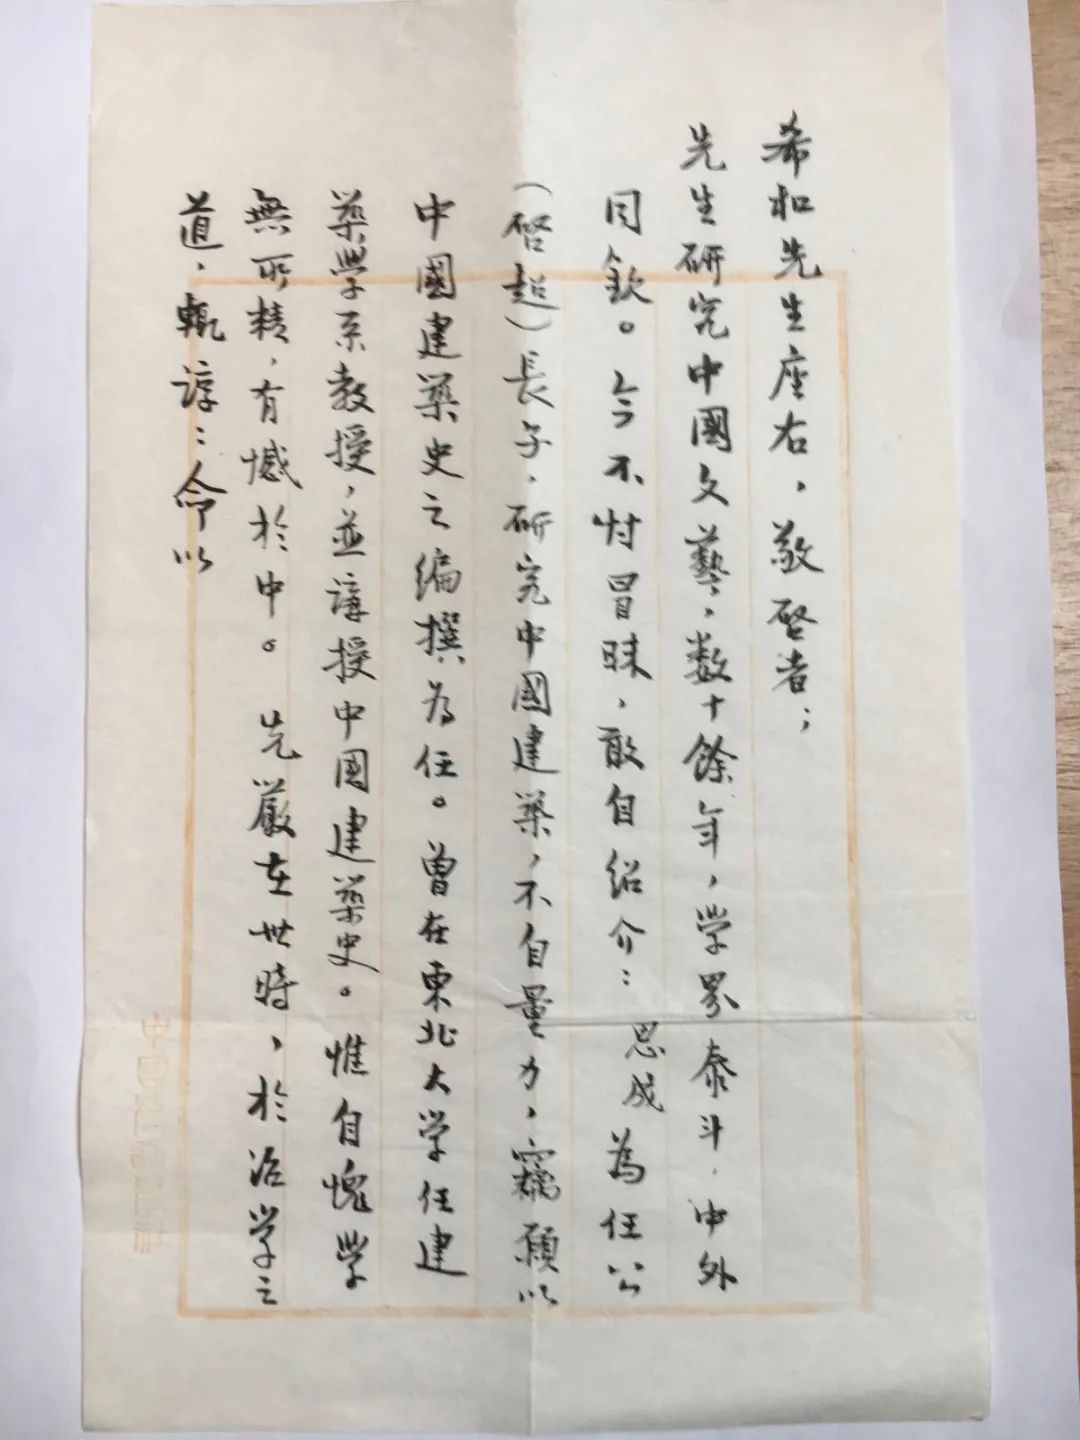 希和先生座右，敬啓者；
先生研究中國文藝，数十餘年，学界泰斗，中外
同欽。今不忖冒昧，敢自紹介：思成為任公
（啓超）長子，研究中國建築，不自量力，竊願以
中國建築史之编撰為任。曾在東北大学任建
築學系教授，並講授中國建築史。惟自愧學
無所精，有憾於中。先嚴在世時，於治学之
道，輒諄：命以
中國營造學社